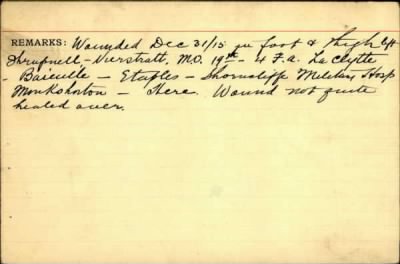 REMARKS: Wounded Dec 31/15 in foot & thigh left
Shrapnell - Vierstratt, M.O. 19th - 4 F.a. La Clytte
- Baieulle - Etaples - Shorncliffe Military Hosp
Monkshorton - Here. Wound not quite
healed over.